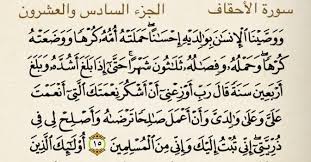 سورة الأحقاف الجزء السادس والعشرون
وَوَصَّيْنَا الْإِنسَانَ بِوَالِدَيْهِ إِحْسَانًا حَمَلَتْهُ أُمُّهُ كُرْهًا وَوَضَعَتْهُ
كُرْهًا وَحَمْلُهُ وَفِصَالُهُ ثَلَاثُونَ شَهْرًا حَتَّىٰ إِذَا بَلَغَ أَشُدَّهُ وَبَلَغَ
أَرْبَعِينَ سَنَةً قَالَ رَبِّ أَوْزِعْنِي أَنْ أَشْكُرَ نِعْمَتَكَ الَّتِي أَنْعَمْتَ
عَلَيَّ وَعَلَىٰ وَالِدَيَّ وَأَنْ أَعْمَلَ صَالِحًا تَرْضَاهُ وَأَصْلِحْ لِي فِي
ذُرِّيَّتِي إِنِّي تُبْتُ إِلَيْكَ وَإِنِّي مِنَ الْمُسْلِمِينَ ١٥ أُولَٰئِكَ الَّذِينَ